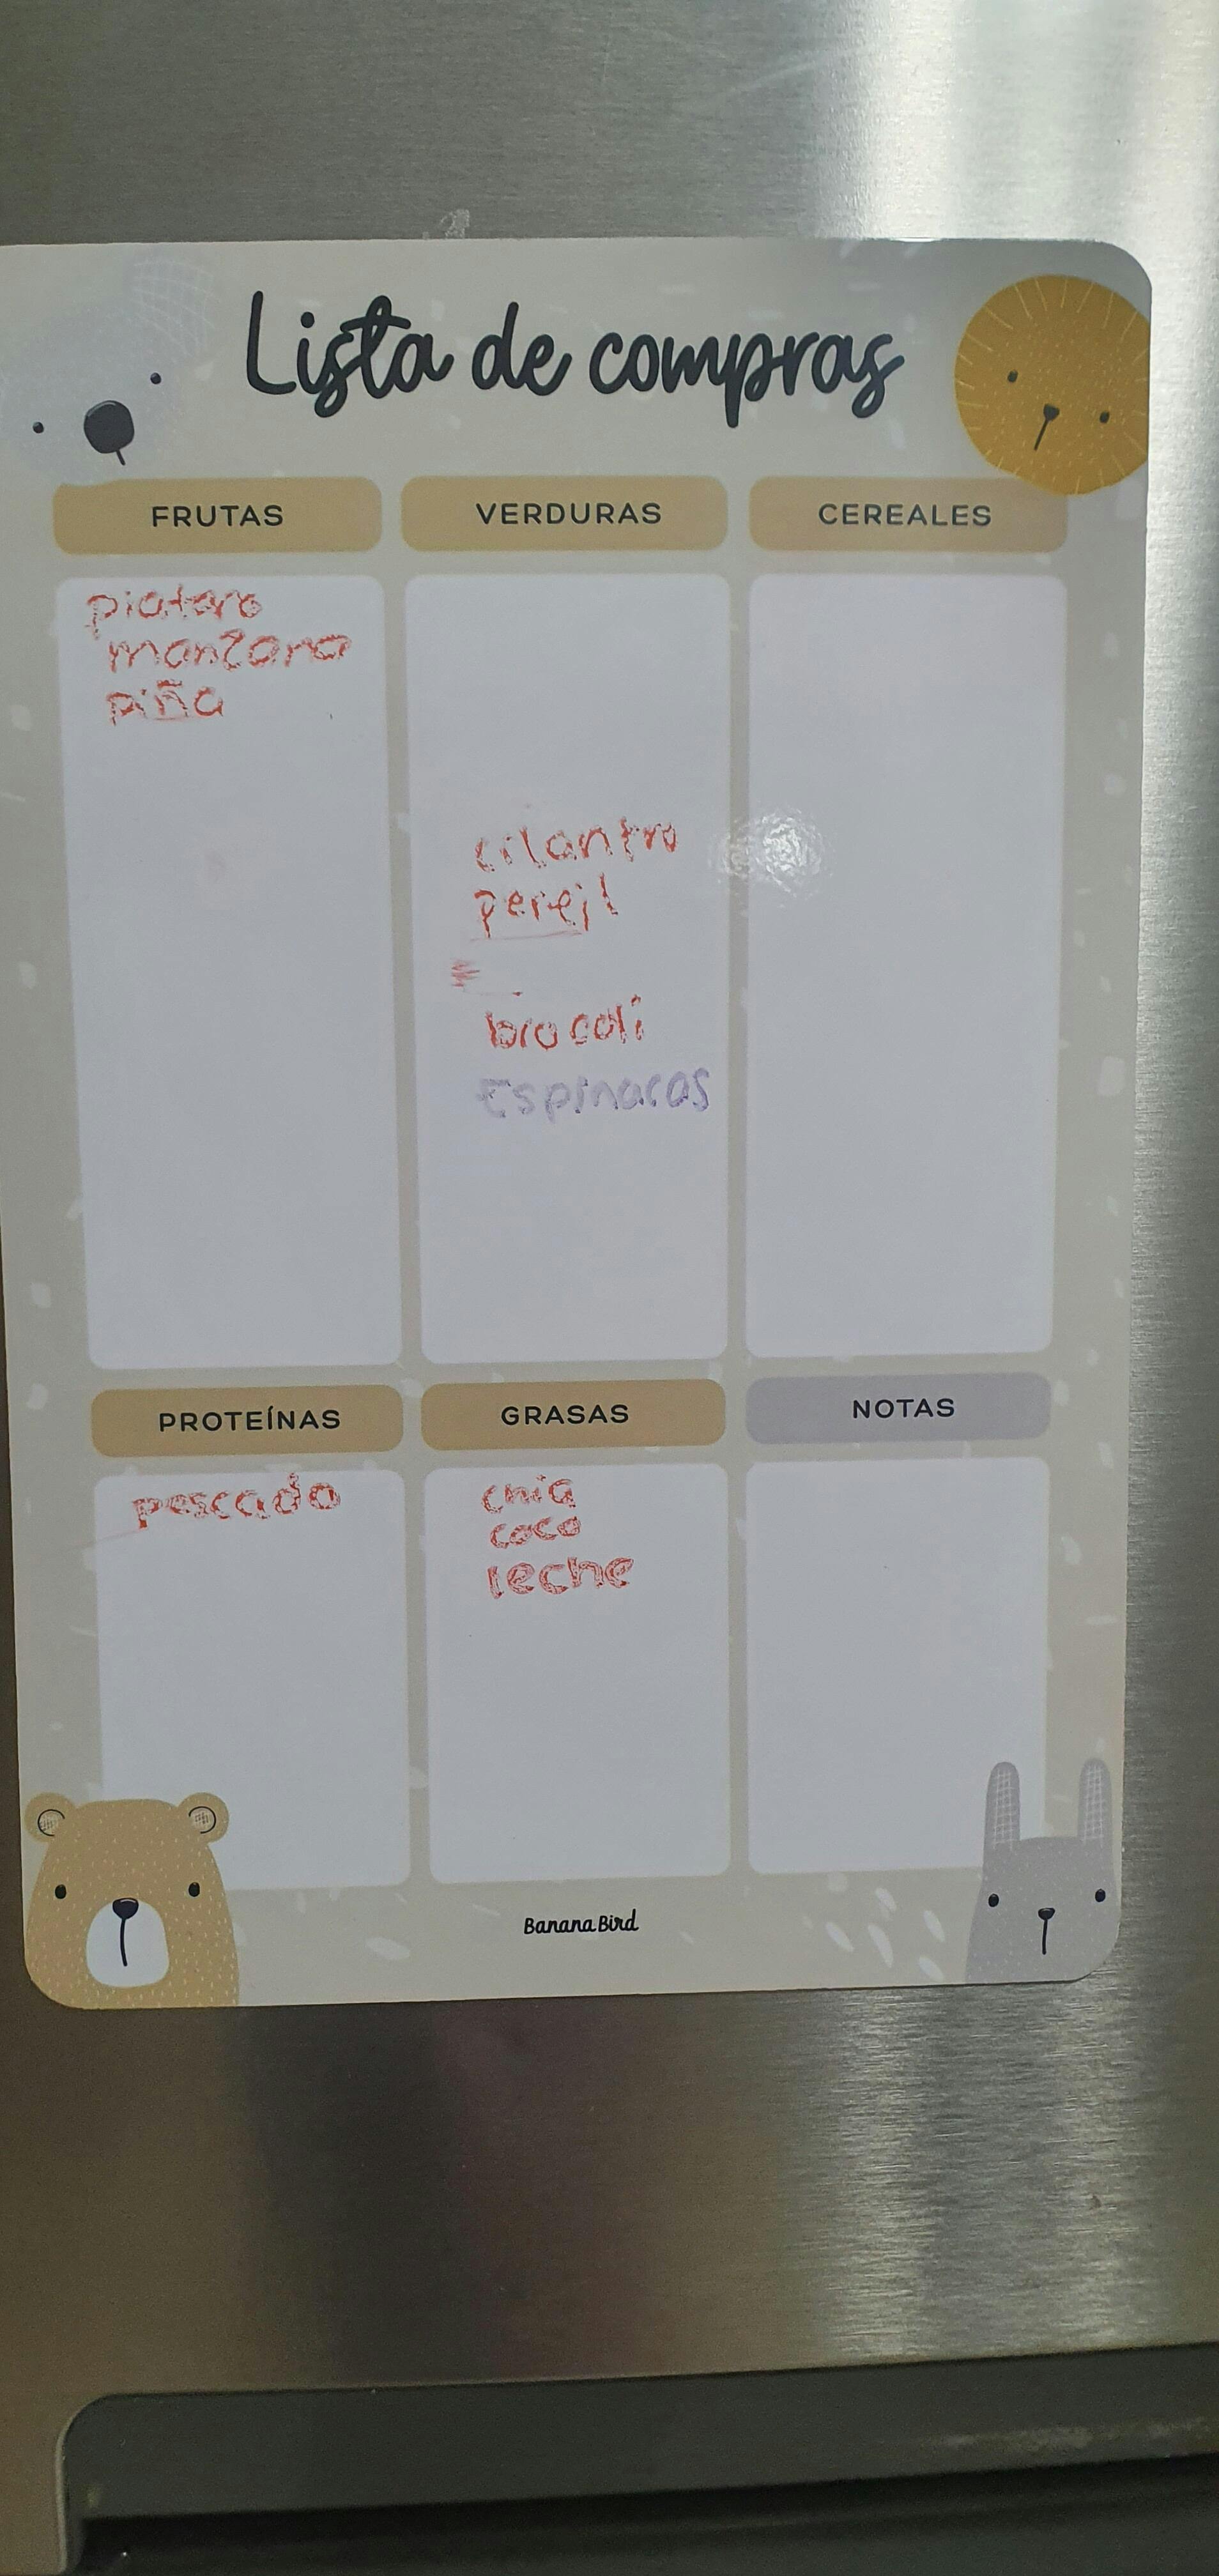 Lista de compras
FRUTAS
VERDURAS
CEREALES
platano
manzana
piña
cilantro
perejil
brocoli
Espinacas
PROTEÍNAS
GRASAS
NOTAS
pescado
chia
coco
leche
Banana Bird